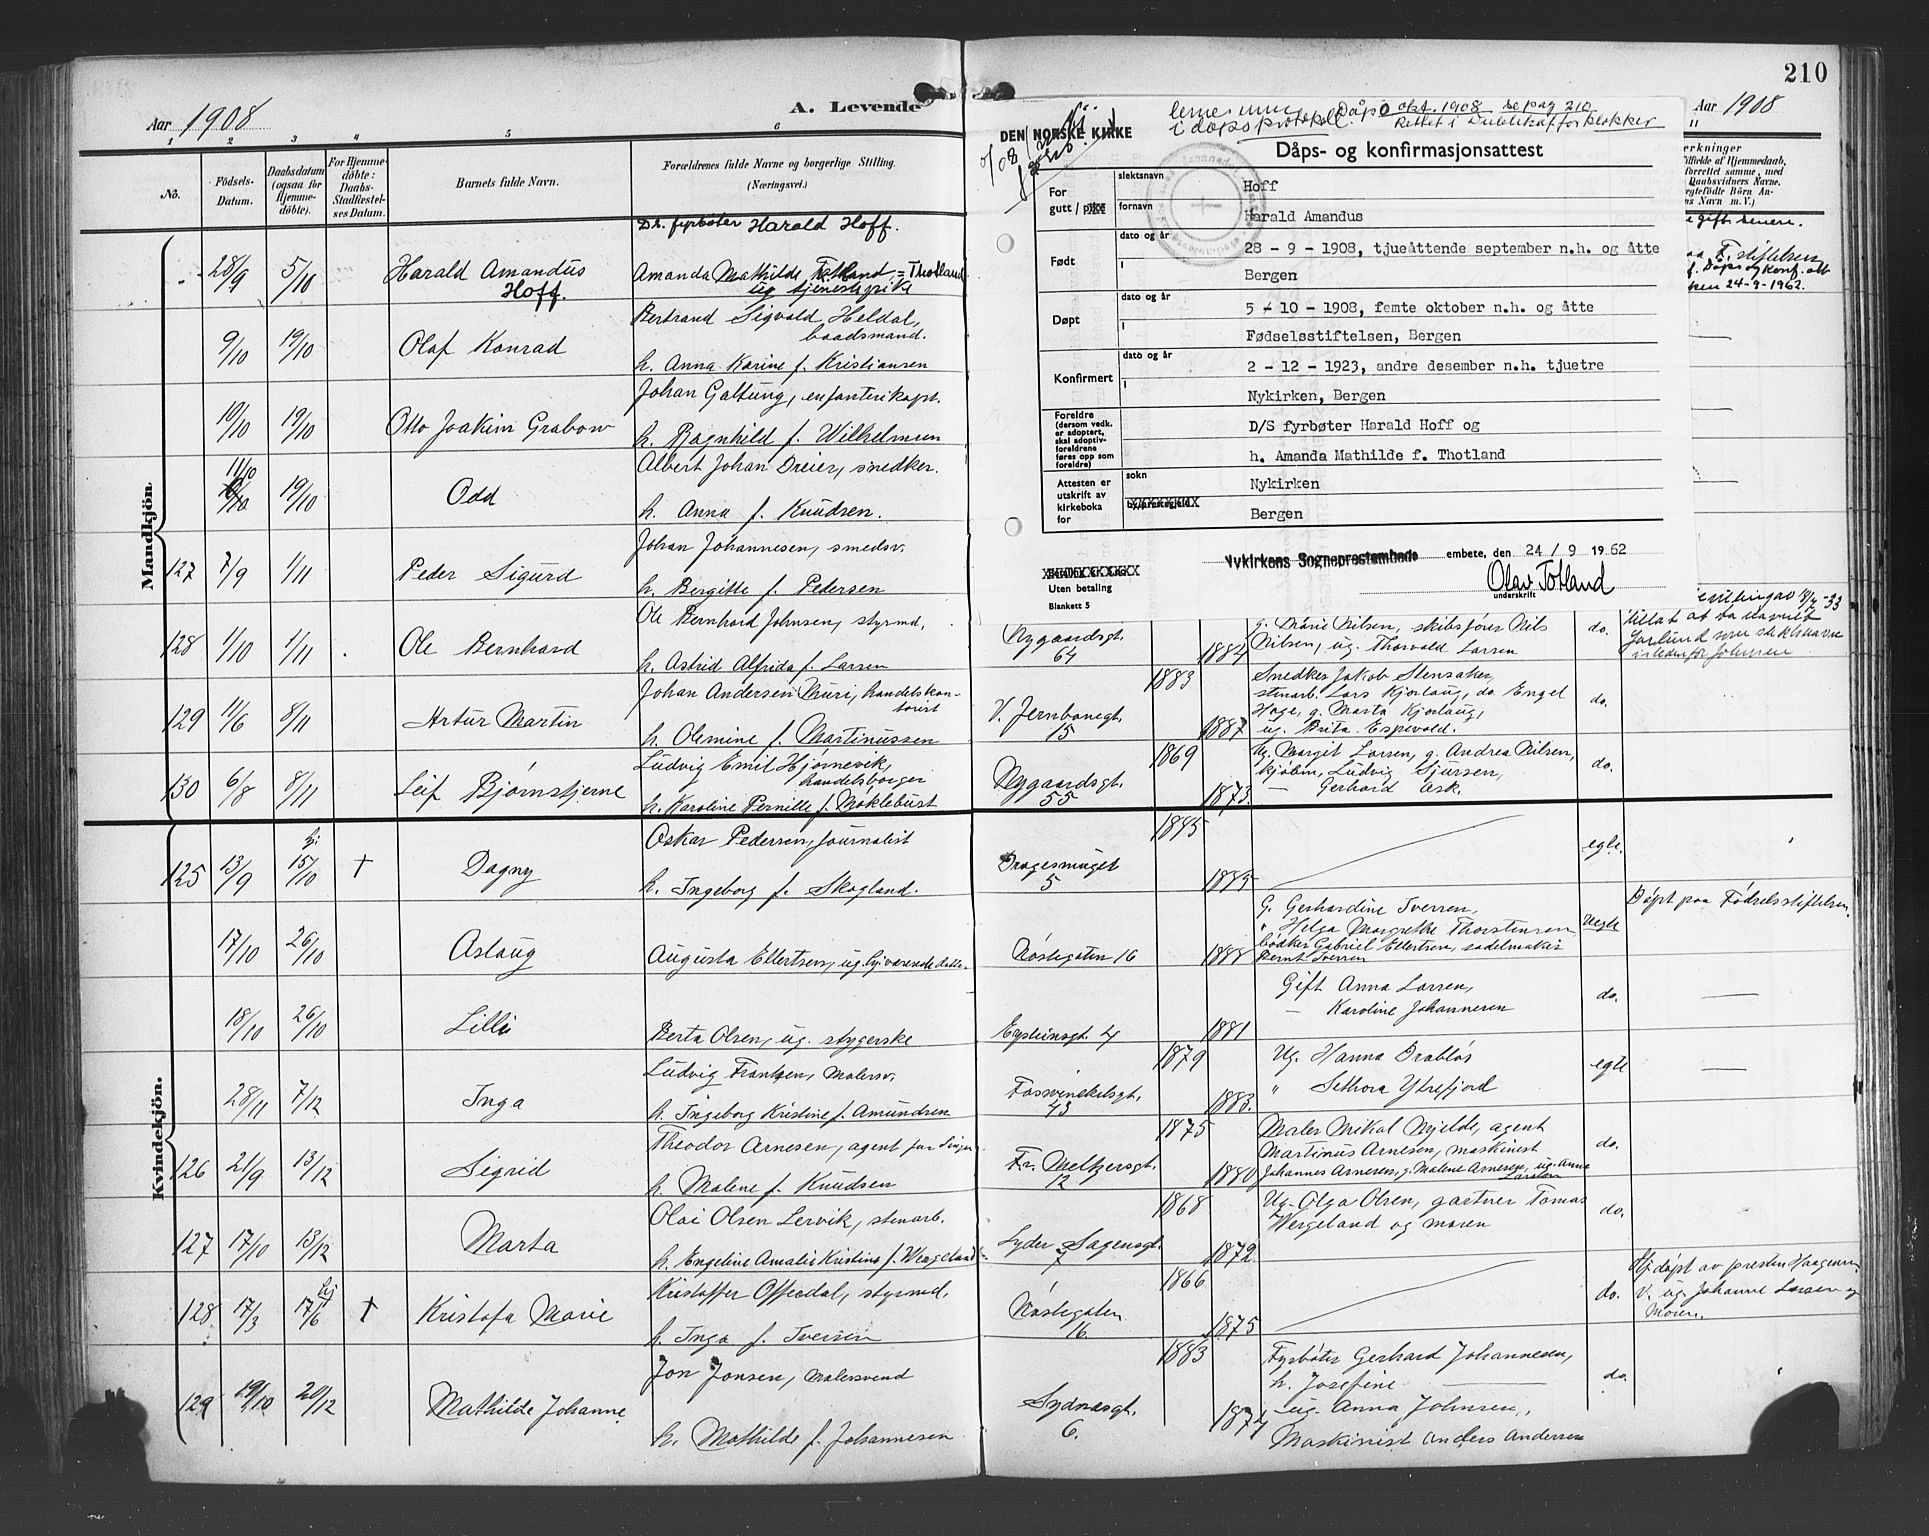 210
Aar 1908
A. Levende
Aar 1908
1 2 3 4 5 6
No.
Födsels-Datum.
Daabsdatum (ogsaa for Hjemme-döbte).
For Hjemme-döbte: Daabs-Stadfæstel-ses Datum.
Barnets fulde Navn.
Forældrenes fulde Navne og borgerlige Stilling.
(Næringsvei.)
Mandkjön.
D.s. fyrbøter Harald Hoff.
28/9 5/10 Harald Amandus Hoff. Amanda Mathilde Totland = Thotland
ug tjenestepike
Bertrand Sigvald Heldal,
baadsmand.
9/10 19/10 Olaf Konrad
h. Anna Karine f. Kristiansen
Johan Galtung, infanterikapt.
10/10 19/10 Otto Joakim Grabow
h. Ragnhild f. Wilhelmsen
Albert Johan Dreier, snedker.
11/10 19/10 Odd
h. Anna f. Knudsen.
Johan Johannesen, smedsv.
127 7/9 1/11 Peder Sigurd
h. Bergitte f. Pedersen
Ole Bernhard Johnsen, styrmd.
128 1/10 1/11 Ole Bernhard
h. Astrid Alfrida f. Larsen
Johan Andersen Muri, handelskon-
torist
129 11/6 8/11 Artur Martin
h. Olemine f. Martinussen
Ludvig Emil Hjørnevik,
handelsborger
130 6/8 8/11 Leif Bjørnstjerne
h. Karoline Pernille f. Møklebust
Kvindekjön.
Oskar Pedersen, journalist
125 13/9 hj. 15/10 † Dagny
h. Ingeborg f. Skogland.
17/10 26/10 Aslaug
Augusta Ellertsen, ug. hjværende datter
18/10 26/10 Lilli
Berta Olsen, ug. sygerske
Ludvig Frantzen, malersv.
28/11 7/12 Inga
h. Ingeborg Kristine f. Amundsen
Theodor Arnesen, agent for Singer
126 21/9 13/12 Sigrid
h. Malene f. Knudsen
Olai Olsen Lervik, stenarb.
127 17/10 13/12 Marta
h. Engeline Amalie Kristine f. Wergeland
Kristoffer Offerdal, styrmd.
128 17/3 hj 17/6 † Kristofa Marie
h. Inga f. Iversen
Jon Jonsen, malersvend
129 19/10 20/12 Mathilde Johanne
h. Mathilde f. Johannesen
i dåpsprotokoll. Dåp 5 okt. 1908 se pag 210
DEN NORSKE KIRKE
Dåps- og konfirmasjonsattest
For gutt / pike
slektsnavn
Hoff
fornavn
Harald Amandus
Født
dato og år
28 - 9 - 1908, tjueåttende september n.h. og åtte
i
Bergen
Døpt
dato og år
5 - 10 - 1908, femte oktober n.h. og åtte
i
Fødselsstiftelsen, Bergen
Konfirmert
dato og år
2 - 12 - 1923, andre desember n.h. tjuetre
i
Nykirken, Bergen
Foreldre
(dersom vedk.
er adoptert,
skal adoptiv-
foreldrene
føres opp som
foreldre)
D/S fyrbøter Harald Hoff og
h. Amanda Mathilde f. Thotland
Attesten er utskrift av kirkeboka for
sokn
Nykirken
by/prestegjeld
Bergen
Nykirkens Sogneprestembede embete, den 24 / 9 1962
Uten betaling
Olav Totland
underskrift
Blankett 5
11
gift senere.
F. stiftelsen
24-9-1962.
Nygaardsgt. 64 1884
g. Marie Nilsen, skibsfører Nils
Nilsen, ug. Thorvald Larsen
do.
V. Jernbanegt. 15 1883 1887
Snedker Jakob Stensaker,
stenarb. Lars Kjorlaug, do. Engel
Hage, g. Marta Kjorlaug,
ug. Brita Espevold.
do.
Nygaardsgt. 55 1869 1873.
Ug. Margit Larsen, g. Andrea Nilsen,
kjøbm. Ludvig Sjursen,
— Gerhard Esk.
do.
Dragesmuget 5 1885
egte.
Nøstegaten 16 1888
G. Gerhardine Iversen,
" Helga Margrethe Thorstensen
bødker Gabriel Ellertsen, sadelmaker
Bernt Iversen
uegte
Døpt paa Fødselsstiftelsen.
Eysteinsgt. 4 1881
Gift Anna Larsen,
— Karoline Johannesen
do.
—
Fosswinckelsgt. 43 1879 1883.
Ug. Hanna Brabløs
" Sethora Ytrefjord
egte
—
Fr. Meltzersgt. 12 1875 1880
Maler Mikal Mjelde, agent
Martinus Arnesen, maskinist
Johannes Arnesen, g. Malene Arnesen, ug. Anna
Larsen
do.
Lyder Sagensgt. 7 1868 1872
Ug. Olga Olsen, gartner Tomas
Wergeland og moren
do.
Nøstegaten 16 1866 1875
do.
Hj.døpt av presten Haagensen
V. ug. Johanne Larsen og
Moren.
Sydnesgt. 6. 1883 1874
Fyrbøter Gerhard Johannesen,
h. Josefine —
ug. Anna Johnsen,
Maskinist Anders Andersen
do.